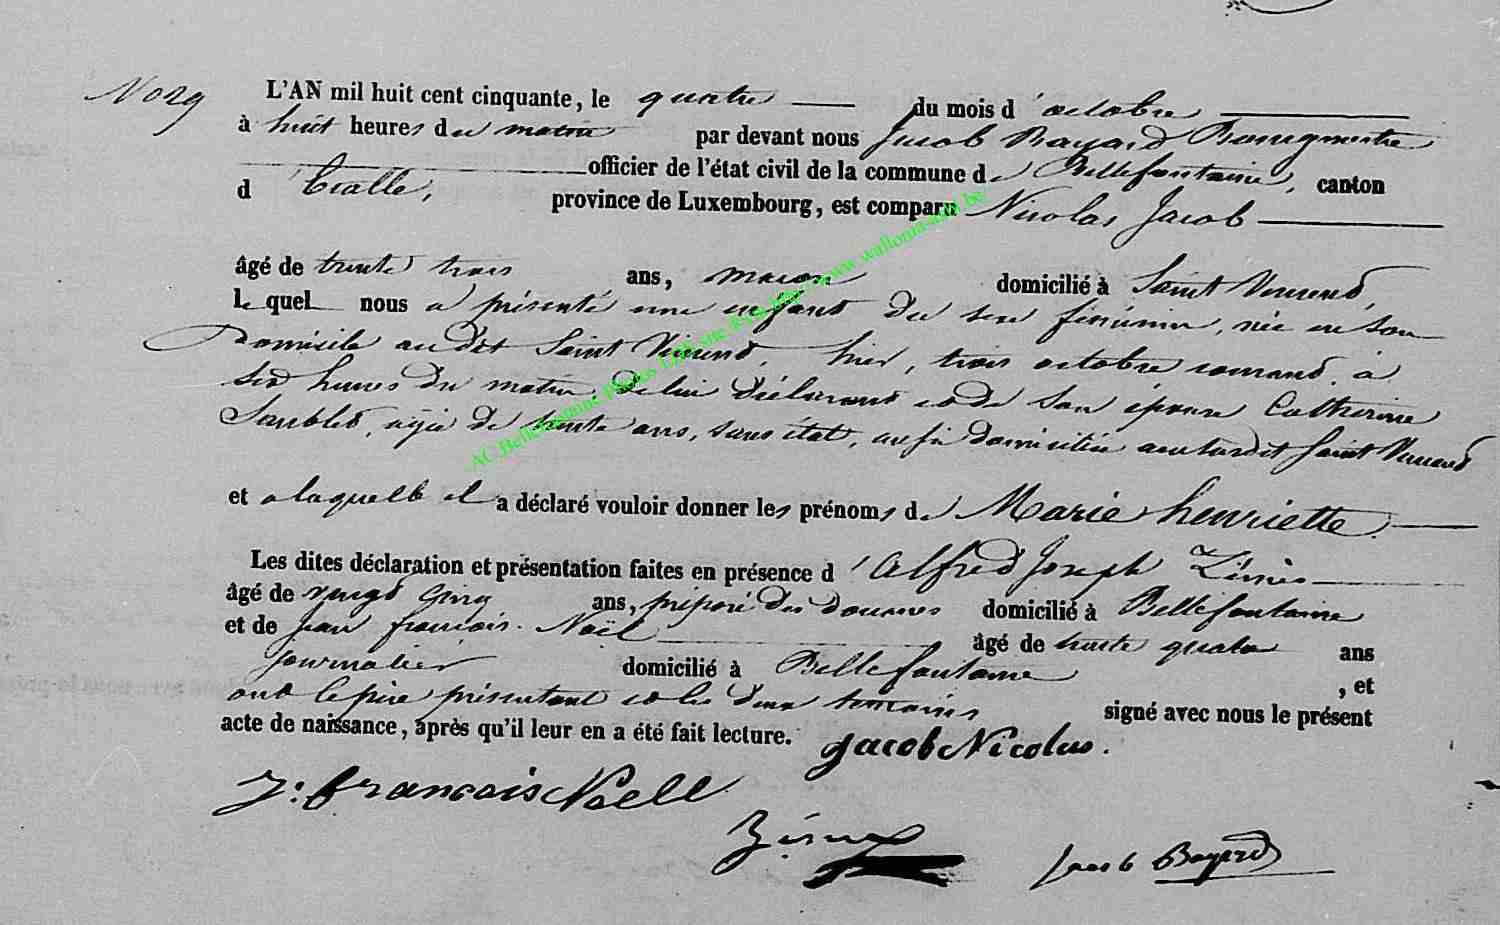 L'AN mil huit cent cinquante, le quatre du mois d'octobre
à huit heures du matin par devant nous Jacob Bayard Bourgmestre
officier de l'état civil de la commune de Bellefontaine, canton
d'Etalle, province de Luxembourg, est comparu Nicolas Jacob
âgé de trente trois ans, macon domicilié à Saint Vincent,
le quel nous a présenté une enfant du sexe féminin, née en son
Domicile audit Saint Vincent, hier, trois octobre courant, à
six heures du matin, de lui déclarant et de son épouse Catherine
agée de trente ans, sans état, aussi domiciliée audit Saint Vincent
et a laquelle il a déclaré vouloir donner les prénoms de Marie henriette.
Les dites déclaration et présentation faites en présence d'Alfred Joseph
âgé de vingt cinq ans, préposé des douanes domicilié à Bellefontaine
et de Jean françois Noël âgé de trente quatre ans
journalier domicilié à Bellefontaine, et
ont le père présentant et les deux temoins signé avec nous le présent
acte de naissance, après qu'il leur en a été fait lecture.
Jacob Nicolas.
J: francois Noell
Jacob Bayard
AC Bellefontaine www.wallonia